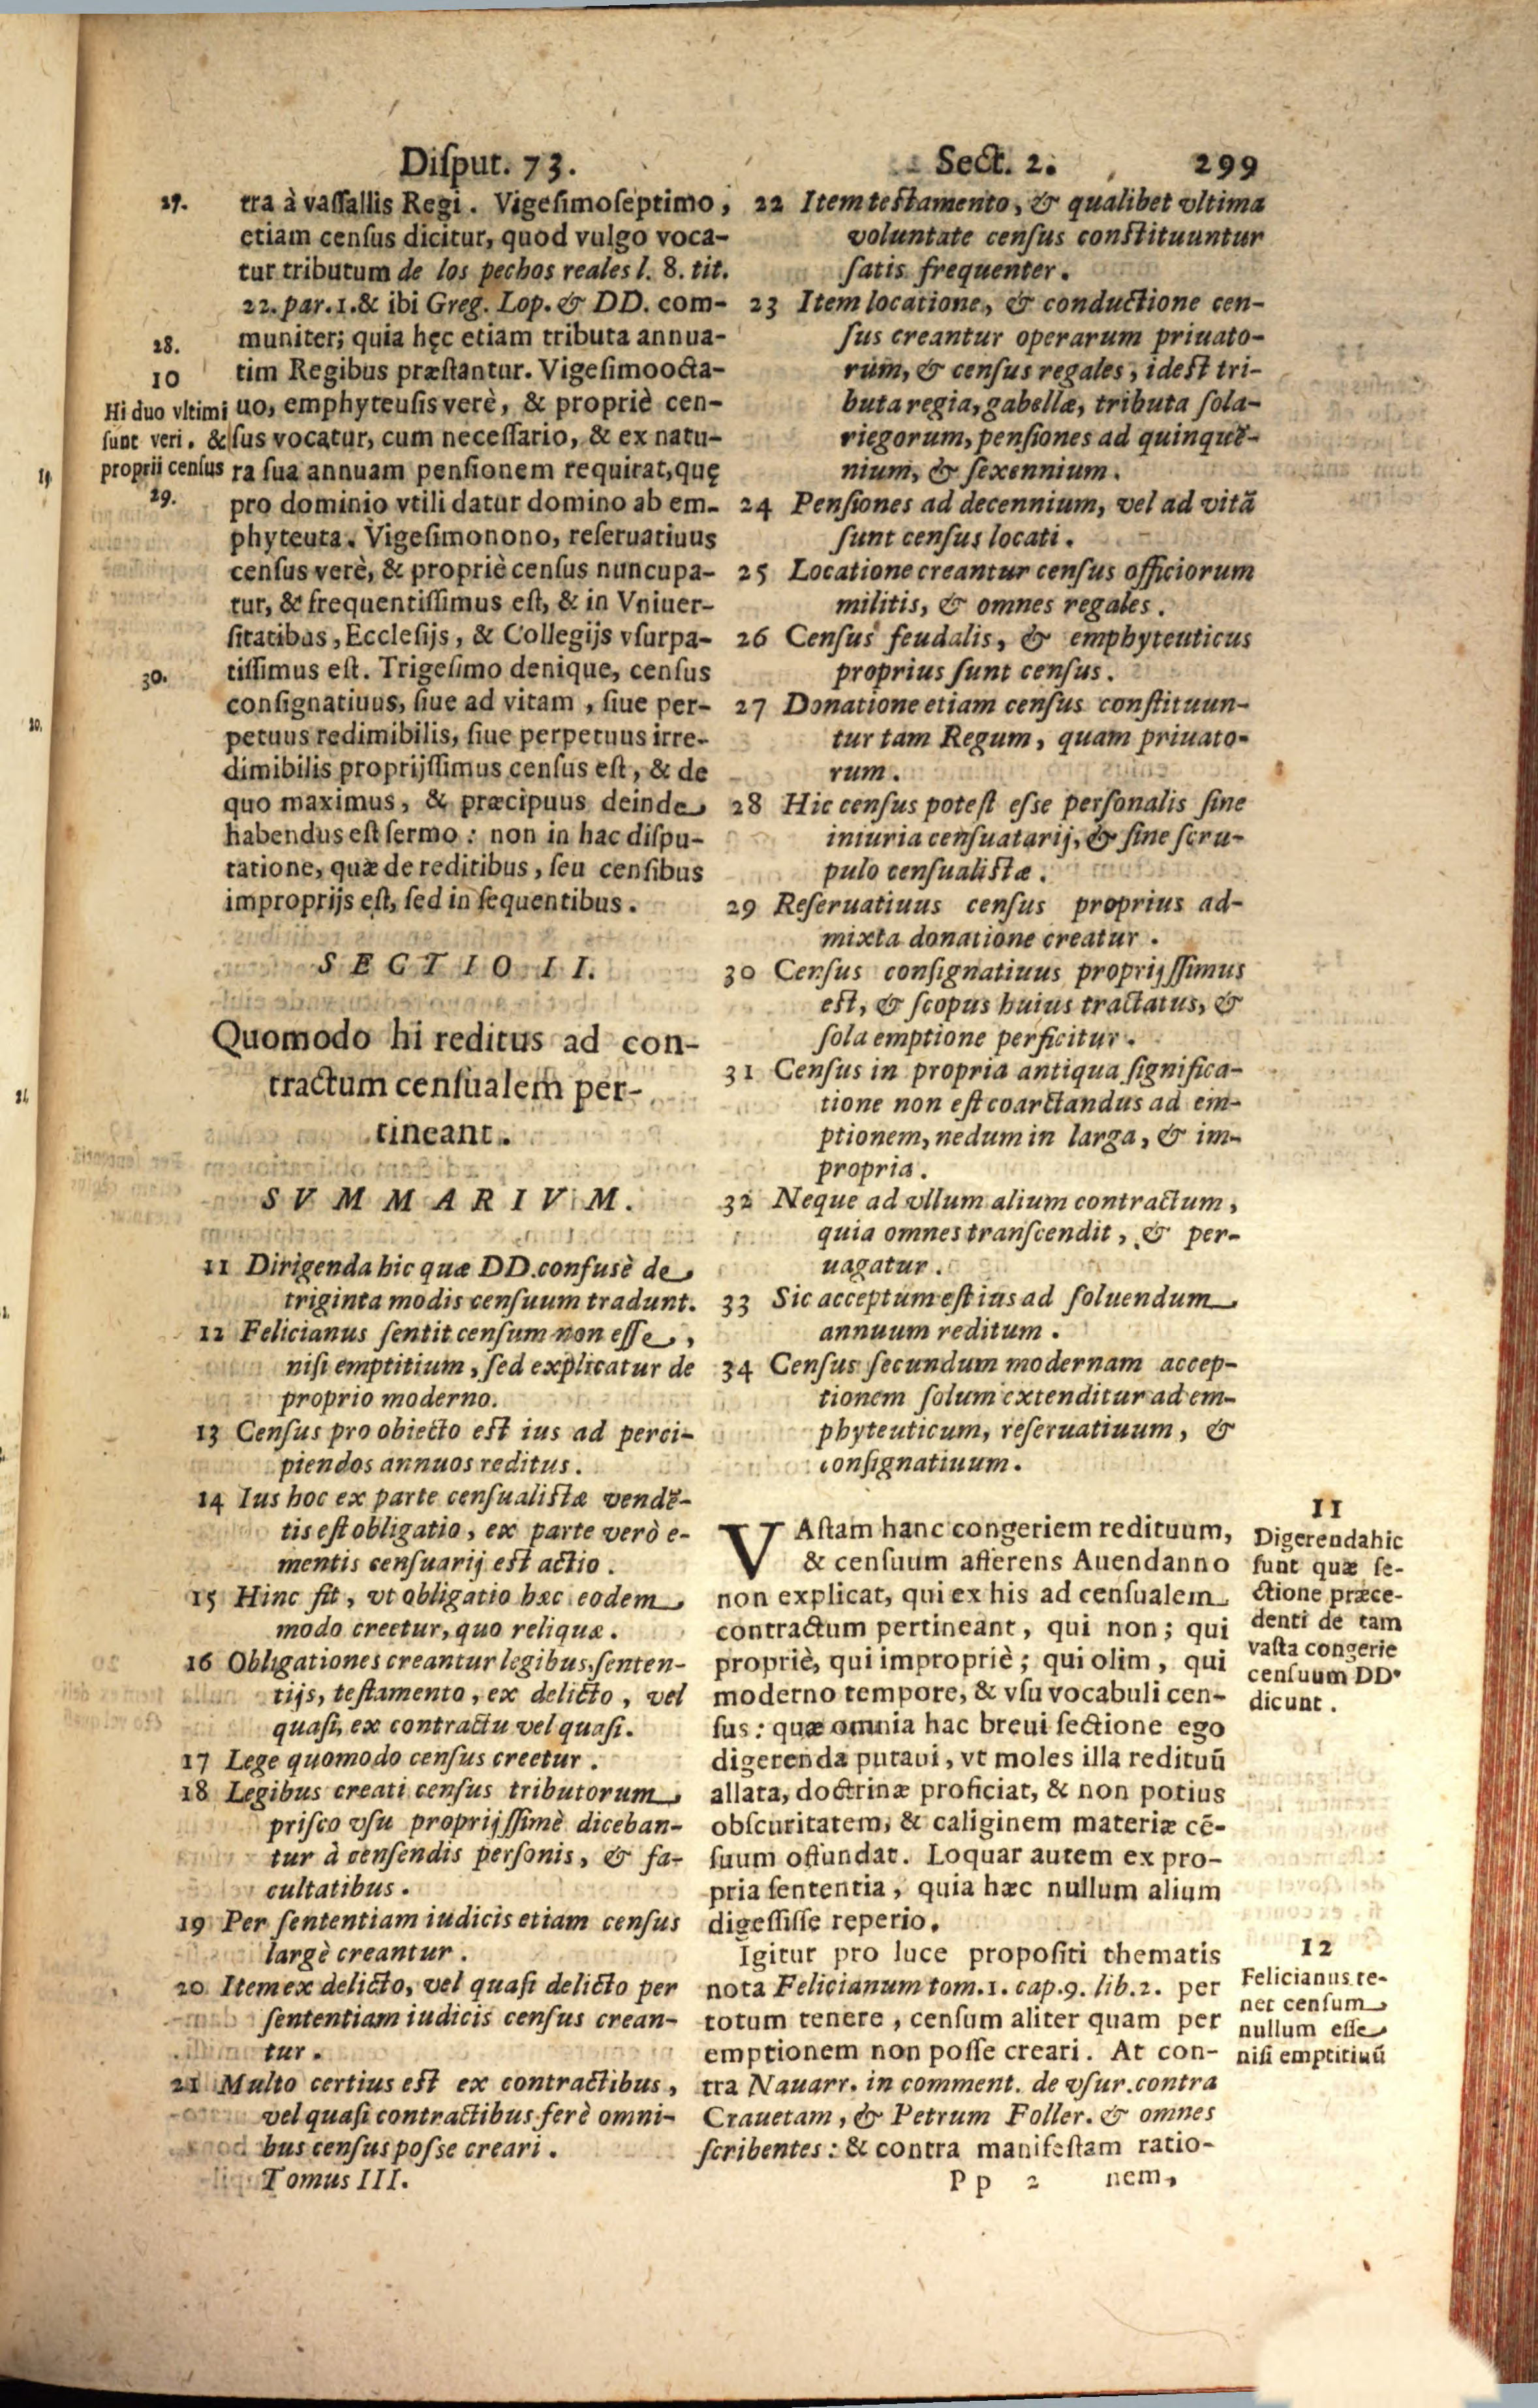 Diſput. 73. Sect. 2. 299
27.
tra à vaſſallis Regi. Vigeſimoſeptimo,
etiam cenſus dicitur, quod vulgo voca-
tur tributum de los pechos reales l. 8. tit.
22. par. 1. & ibi Greg. Lop. & DD. com-
muniter; quia hęc etiam tributa annua-
28.
10
tim Regibus præſtantur. Vigeſimoocta-
Hi duo vltimi
ſunt veri, &
proprii cenſus
uo, emphyteuſis verè, & propriè cen-
ſus vocatur, cum neceſſario, & ex natu-
ra ſua annuam penſionem requirat, quę
29.
pro dominio vtili datur domino ab em-
phyteuta. Vigeſimonono, reſeruatiuus
cenſus verè, & propriè cenſus nuncupa-
tur, & frequentiſſimus eſt, & in Vniuer-
ſitatibus, Eccleſijs, & Collegijs vſurpa-
30.
tiſſimus eſt. Trigeſimo denique, cenſus
conſignatiuus, ſiue ad vitam, ſiue per-
petuus redimibilis, ſiue perpetuus irre-
dimibilis proprijſſimus cenſus eſt, & de
quo maximus, & præcipuus deinde
habendus eſt ſermo: non in hac diſpu-
tatione, quæ de reditibus, ſeu cenſibus
improprijs eſt, ſed in ſequentibus.
SECTIO II.
Quomodo hi reditus ad con-
tractum cenſualem per-
tineant.
SVMMARIVM.
11 Dirigenda hic quæ DD. confusè de
triginta modis cenſuum tradunt.
12 Felicianus ſentit cenſum non eſſe,
niſi emptitium, ſed explicatur de
proprio moderno.
13 Cenſus pro obiecto eſt ius ad perci-
piendos annuos reditus.
14 Ius hoc ex parte cenſualiſtæ vendẽ-
tis eſt obligatio, ex parte verò e-
mentis cenſuarij eſt actio.
15 Hinc fit, vt obligatio hæc eodem
modo creetur, quo reliquæ.
16 Obligationes creantur legibus, ſenten-
tijs, teſtamento, ex delicto, vel
quaſi, ex contractu vel quaſi.
17 Lege quomodo cenſus creetur.
18 Legibus creati cenſus tributorum
priſco vſu proprijſſimè diceban-
tur à cenſendis perſonis, & fa-
cultatibus.
19 Per ſententiam iudicis etiam cenſus
largè creantur.
20 Item ex delicto, vel quaſi delicto per
ſententiam iudicis cenſus crean-
tur.
21 Multo certius eſt ex contractibus,
vel quaſi contractibus ferè omni-
bus cenſus poſſe creari.
Tomus III.
22 Item teſtamento, & qualibet vltima
voluntate cenſus conſtituuntur
ſatis frequenter.
23 Item locatione, & conductione cen-
ſus creantur operarum priuato-
rum, & cenſus regales, ideſt tri-
buta regia, gabellæ, tributa ſola-
riegorum, penſiones ad quinquẽ-
nium, & ſexennium.
24 Penſiones ad decennium, vel ad vitã
ſunt cenſus locati.
25 Locatione creantur cenſus officiorum
militis, & omnes regales.
26 Cenſus feudalis, & emphyteuticus
proprius ſunt cenſus.
27 Donatione etiam cenſus conſtituun-
tur tam Regum, quam priuato-
rum.
28 Hic cenſus poteſt eſſe perſonalis ſine
iniuria cenſuatarij, & ſine ſcru-
pulo cenſualiſtæ.
29 Reſeruatiuus cenſus proprius ad-
mixta donatione creatur.
30 Cenſus conſignatiuus proprijſſimus
eſt, & ſcopus huius tractatus, &
ſola emptione perficitur.
31 Cenſus in propria antiqua ſignifica-
tione non eſt coarctandus ad em-
ptionem, nedum in larga, & im-
propria.
32 Neque ad vllum alium contractum,
quia omnes tranſcendit, & per-
uagatur.
33 Sic acceptum eſt ius ad ſoluendum
annuum reditum.
34 Cenſus ſecundum modernam accep-
tionem ſolum extenditur ad em-
phyteuticum, reſeruatiuum, &
conſignatiuum.
11
Digerenda hic
ſunt quæ ſe-
ctione præce-
denti de tam
vaſta congerie
cenſuum DD.
dicunt.
VAſtam hanc congeriem redituum,
& cenſuum afferens Auendanno
non explicat, qui ex his ad cenſualem
contractum pertineant, qui non; qui
propriè, qui impropriè; qui olim, qui
moderno tempore, & vſu vocabuli cen-
ſus: quæ omnia hac breui ſectione ego
digerenda putaui, vt moles illa redituũ
allata, doctrinæ proficiat, & non potius
obſcuritatem, & caliginem materiæ cẽ-
ſuum offundat. Loquar autem ex pro-
pria ſententia, quia hæc nullum alium
digeſſiſſe reperio.
12
Felicianus te-
net cenſum
nullum eſſe
niſi emptitiuũ
Igitur pro luce propoſiti thematis
nota Felicianum tom. 1. cap. 9. lib. 2. per
totum tenere, cenſum aliter quam per
emptionem non poſſe creari. At con-
tra Nauarr. in comment. de vſur. contra
Crauetam, & Petrum Foller. & omnes
ſcribentes: & contra manifeſtam ratio-
Pp 2 nem,